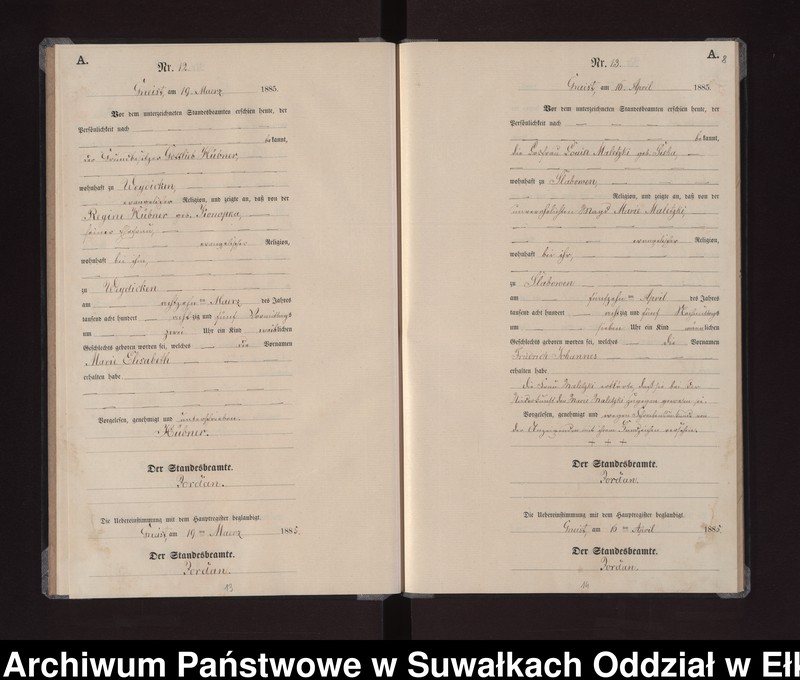 A.
Nr. 12.
Gneist, am 19. Maerz 1885.
Vor dem unterzeichneten Standesbeamten erschien heute, der
Persönlichkeit nach
bekannt,
der Grundbesitzer Gottlieb Kübner,
wohnhaft zu Weydicken,
evangelischer Religion, und zeigte an, daß von der
Regine Kübner geb. Konopka,
seiner Ehefrau,
evangelischer Religion,
wohnhaft bei ihm,
zu Weydicken
am ten Maerz des Jahres
tausend acht hundert achtzig und fünf Vormittags
um zwei Uhr ein Kind weiblichen
Geschlechts geboren worden sei, welches die Vornamen
Marie Elisabeth
erhalten habe
Vorgelesen, genehmigt und unterschrieben.
Kübner.
Der Standesbeamte.
Jordan.
Die Uebereinstimmung mit dem Hauptregister beglaubigt.
Gneist, am 19 ten Maerz 1885.
Der Standesbeamte.
Jordan.
13
A.
8
Nr. 13.
Gneist, am 16. April 1885.
Vor dem unterzeichneten Standesbeamten erschien heute, der
Persönlichkeit nach
bekannt,
die Louise Maletzki geb.
wohnhaft zu Slabowen,
Religion, und zeigte an, daß von der
unverehelichten Magd Marie Maletzki,
evangelischer Religion,
wohnhaft bei ihr,
zu Slabowen
am fünfzehn ten April des Jahres
tausend acht hundert achtzig und fünf Nachmittags
um sieben Uhr ein Kind männlichen
Geschlechts geboren worden sei, welches die Vornamen
Friedrich Johannes
erhalten habe
Die Frau Maletzki erklärte, daß sie bei der
Niederkunft der Marie Maletzki zugegen gewesen sei.
Vorgelesen, genehmigt und wegen Schreibensunkunde von
der Anzeigenden mit ihrem Handzeichen versehen.
+ + +
Der Standesbeamte.
Jordan.
Die Uebereinstimmung mit dem Hauptregister beglaubigt.
Gneist, am 16 ten April 1885.
Der Standesbeamte.
Jordan.
14
Archiwum Państwowe w Suwałkach Oddział w Ełk